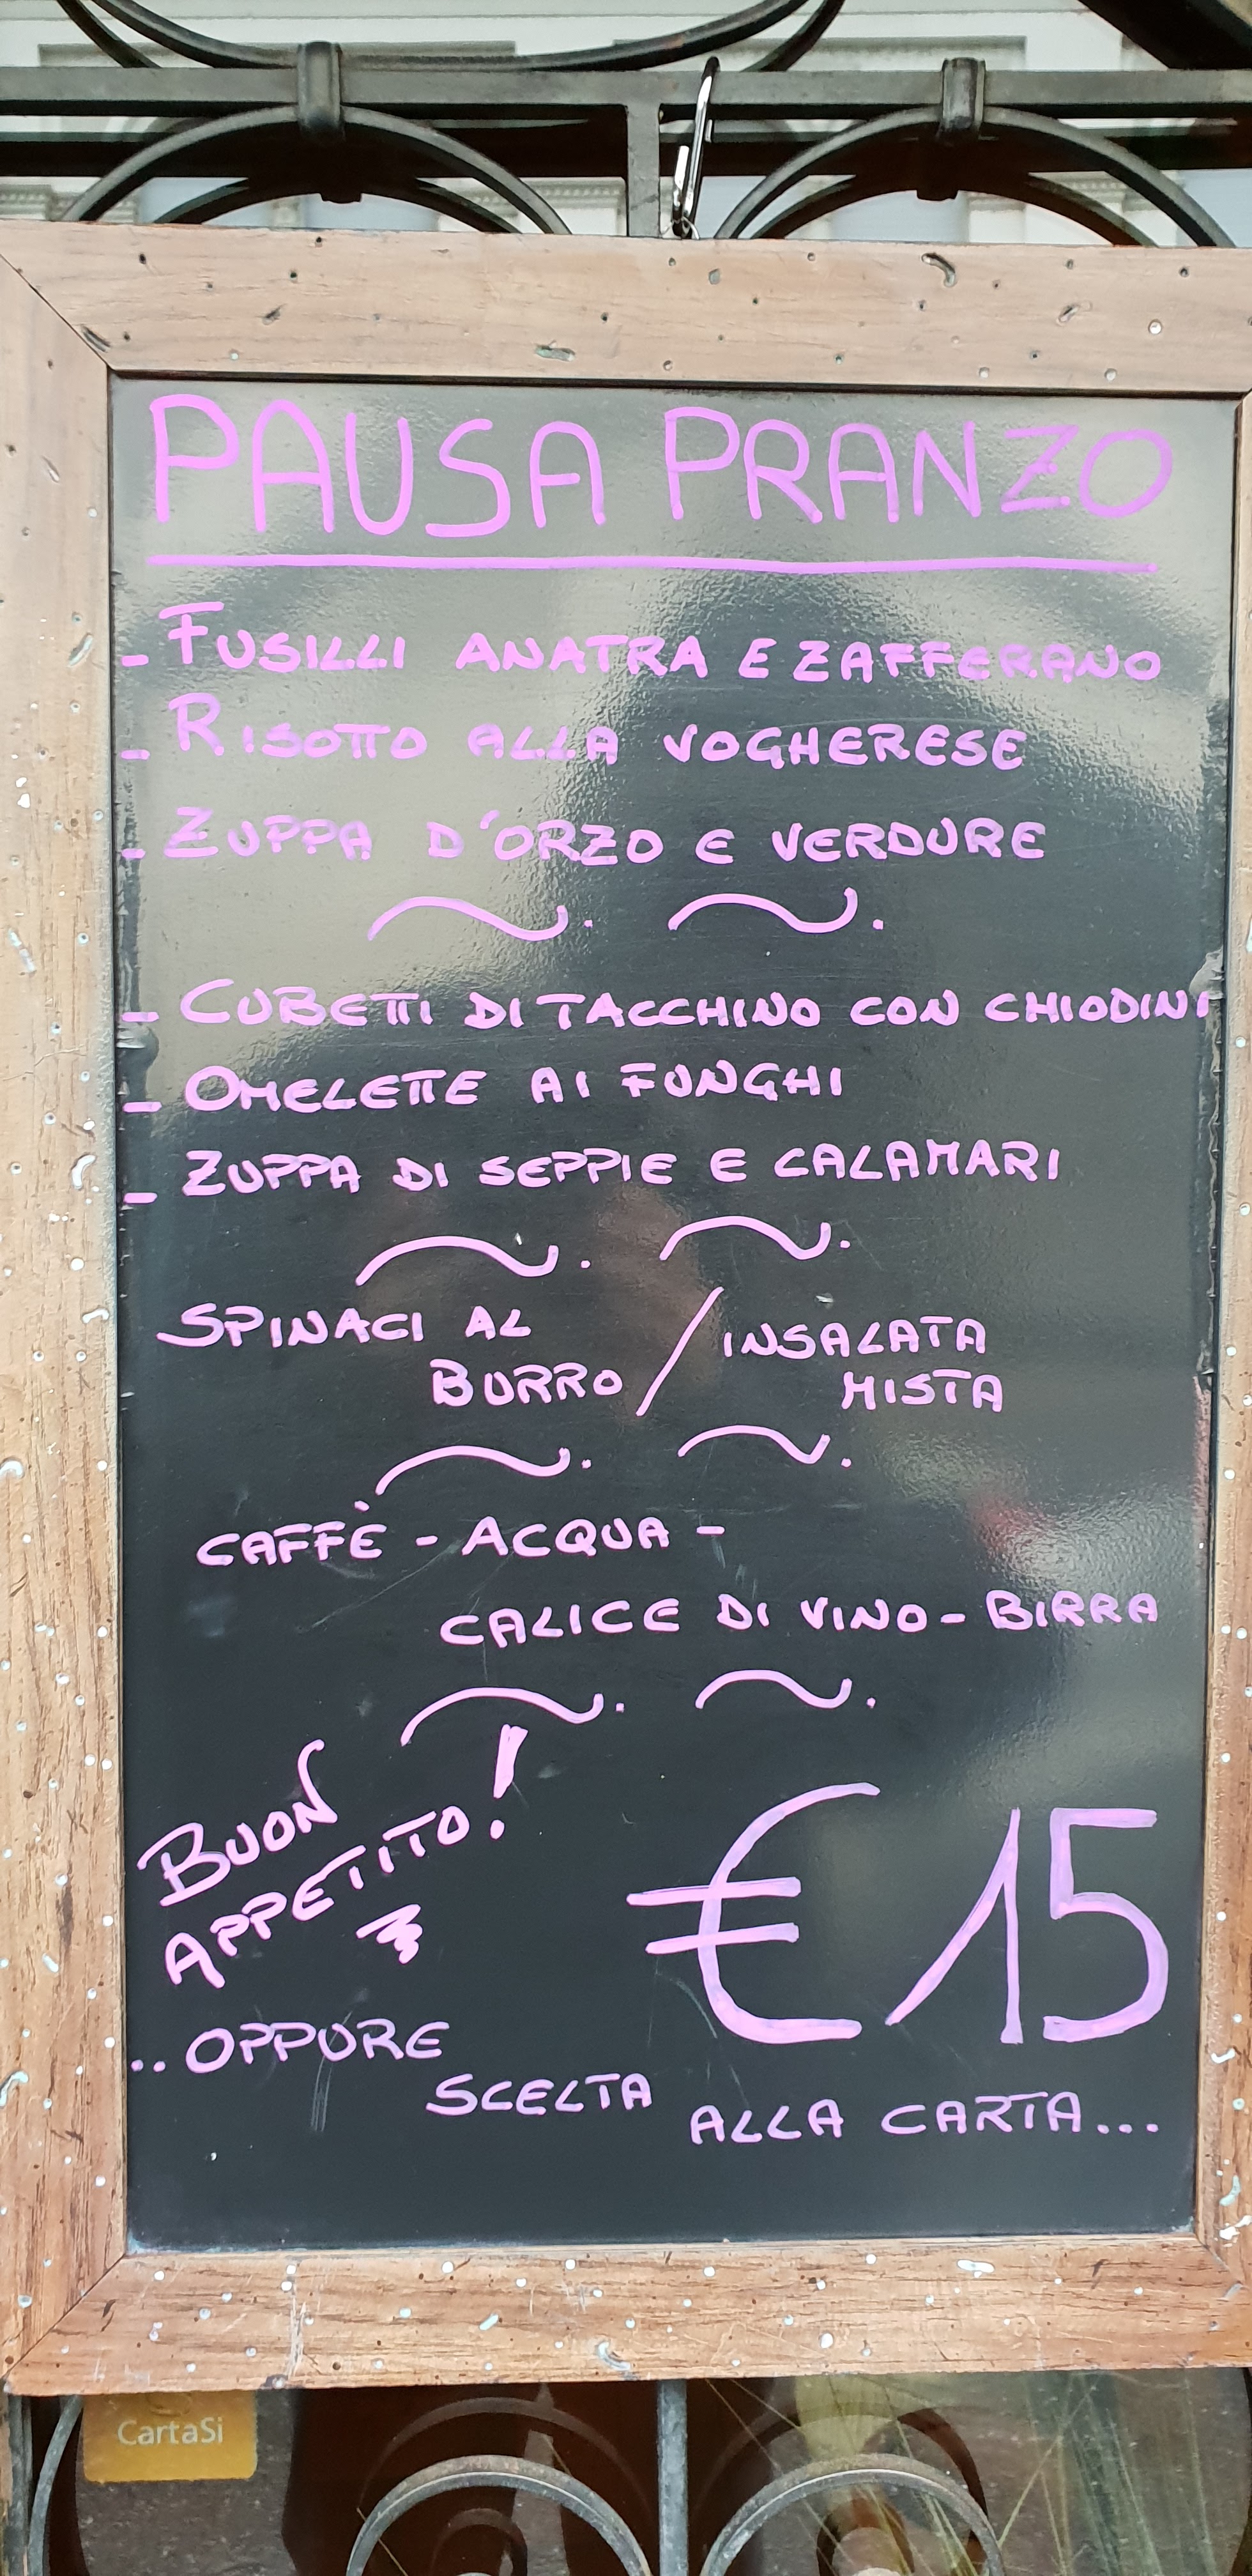 PAUSA PRANZO
- FUSILLI ANATRA E ZAFFERANO
- RISOTTO ALLA VOGHERESE
- ZUPPA D'ORZO E VERDURE
- CUBETTI DI TACCHINO CON CHIODINI
- OMELETTE AI FUNGHI
- ZUPPA DI SEPPIE E CALAMARI
SPINACI AL BURRO / INSALATA MISTA
CAFFÈ - ACQUA -
CALICE DI VINO - BIRRA
BUON
APPETITO!
€ 15
..OPPURE
SCELTA
ALLA CARTA...
CartaSi